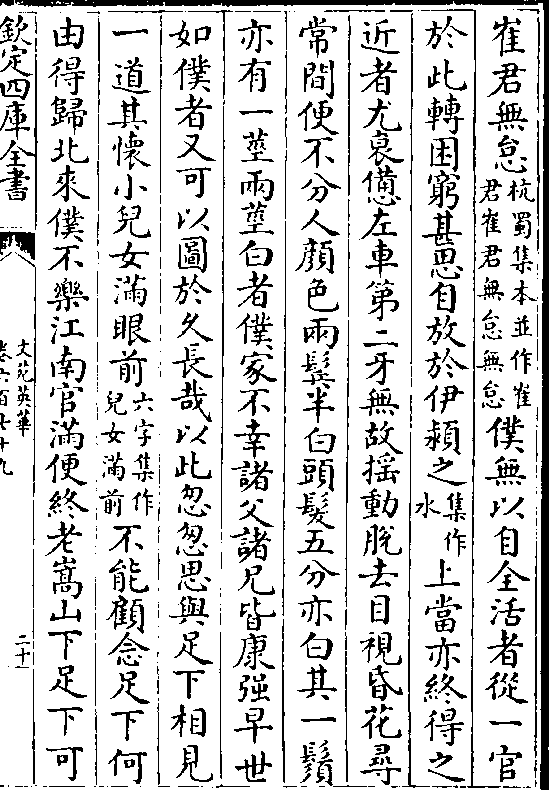 崔君無怠杭蜀集本並作崔君崔君無怠無怠僕無以自全活者從一官
於此轉困窮甚思自放於伊潁之集作水上當亦終得之
近者尤衰憊左車第二牙無故揺動脫去目視昏花尋
常間便不分人顔色兩鬂半白頭髮五分亦白其一鬚
亦有一莖兩莖白者僕家不幸諸父諸兄皆康強早世
如僕者又可以圖於久長哉以此忽忽思與足下相見
一道其懷小兒女滿眼前六字集作兒女滿前不能顧念足下何
由得歸北來僕不樂江南官滿便終老嵩山下足下可
欽定四庫全書
文苑英華
卷六百七十九
二十